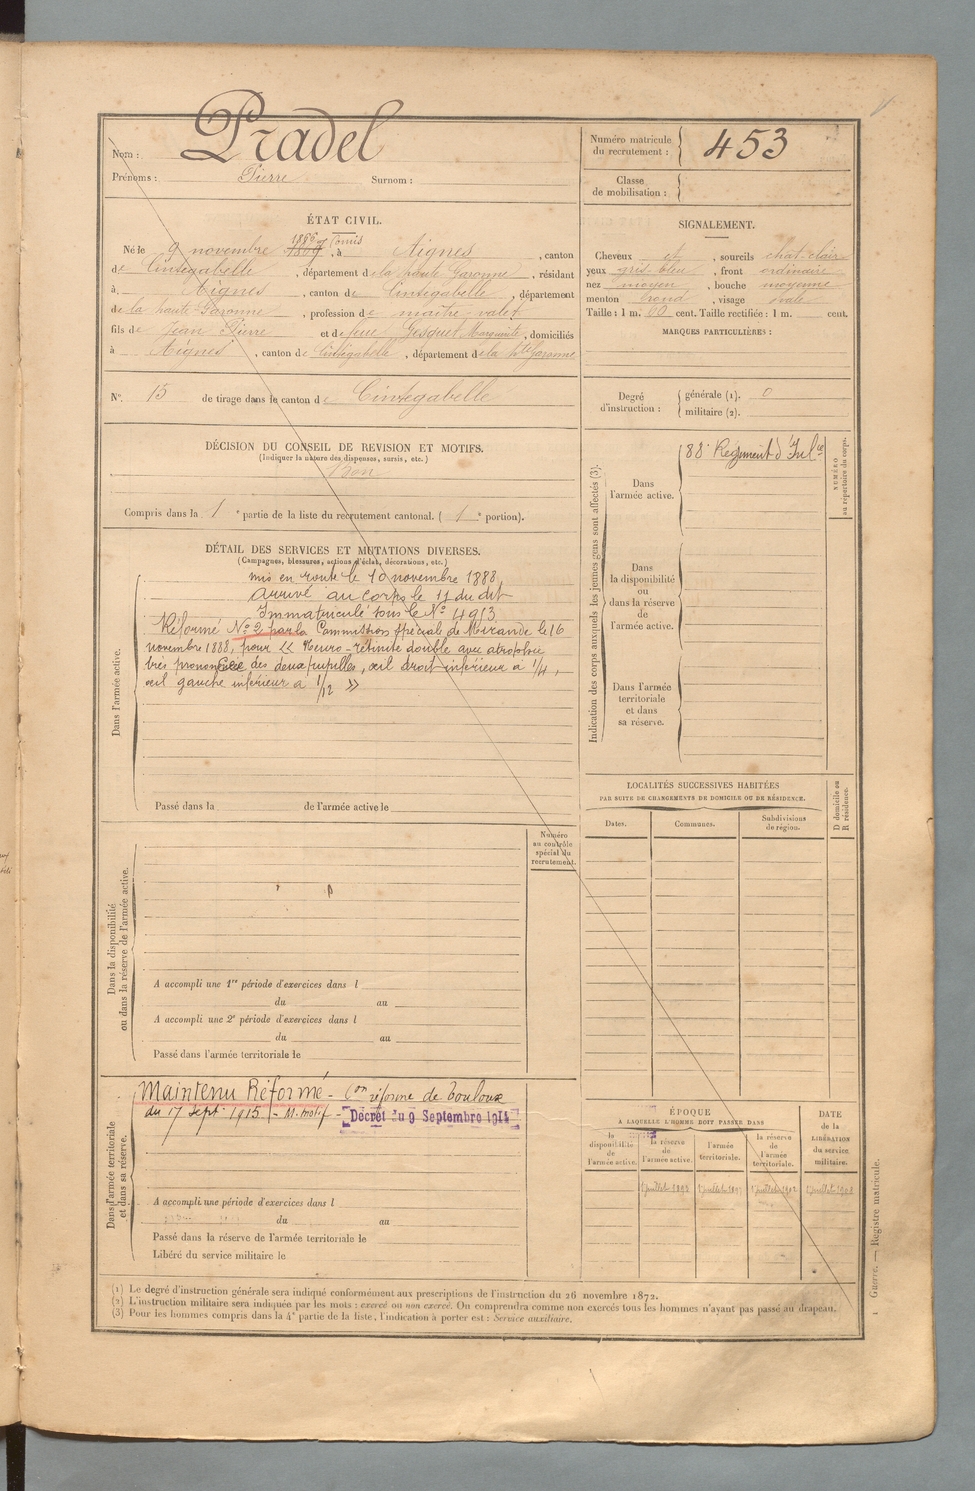 Nom : Pradel
Prénoms : Pierre Surnom :
Numéro matricule du recrutement : 453
Classe de mobilisation :
ÉTAT CIVIL.
Né le 9 novembre 1866, à Aignes, canton
de Cintegabelle, département de la haute Garonne, résidant
à Aignes, canton de Cintegabelle, département
de la haute Garonne, profession de maître-valet
fils de Jean Pierre et de feue Gesquet Marguerite, domiciliés
à Aignes, canton de Cintegabelle, département de la hte Garonne
N° 15 de tirage dans le canton de Cintegabelle
SIGNALEMENT.
Cheveux et, sourcils chat-clair
yeux gris-bleu, front ordinaire
nez moyen, bouche moyenne
menton rond, visage ovale
Taille : 1 m. 60 cent. Taille rectifiée : 1 m. cent.
MARQUES PARTICULIÈRES :
Degré d'instruction : générale (1). 0
militaire (2).
DÉCISION DU CONSEIL DE REVISION ET MOTIFS.
(Indiquer la nature des dispenses, sursis, etc.)
Bon
Compris dans la 1e partie de la liste du recrutement cantonal. ( 1e portion).
DÉTAIL DES SERVICES ET MUTATIONS DIVERSES.
(Campagnes, blessures, actions d'éclat, décorations, etc.)
Dans l'armée active.
mis en route le 10 novembre 1888,
arrivé au corps le 11 du dit
Immatriculé sous le N° 4913
Réformé N° 2 par la Commission spéciale de Mirande le 16
novembre 1888, pour << Neuro-rétinite double avec atrophie
très prononcée des deux pupilles, œil droit inférieur à 1/4,
œil gauche inférieur à 1/12 >>
Passé dans la de l'armée active le
Indication des corps auxquels les jeunes gens sont affectés (3).
Dans l'armée active.
88e Régiment d'Infie
NUMÉRO au répertoire du corps.
Dans la disponibilité ou dans la réserve de l'armée active.
Dans l'armée territoriale et dans sa réserve.
LOCALITÉS SUCCESSIVES HABITÉES
PAR SUITE DE CHANGEMENTS DE DOMICILE OU DE RÉSIDENCE.
Dates. Communes. Subdivisions de région.
D domicile ou R résidence.
Numéro au contrôle spécial du recrutement.
Dans la disponibilité ou dans la réserve de l'armée active.
A accompli une 1re période d'exercices dans l
du au
A accompli une 2e période d'exercices dans l
du au
Passé dans l'armée territoriale le
Dans l'armée territoriale et dans sa réserve.
Maintenu Réformé - Con réforme de Toulouse
du 17 Sept. 1915. - M. motif - Décret du 9 Septembre 1914
A accompli une période d'exercices dans l
du au
Passé dans la réserve de l'armée territoriale le
Libéré du service militaire le
ÉPOQUE
A LAQUELLE L'HOMME DOIT PASSER DANS
la disponibilité de l'armée active.
la réserve de l'armée active.
l'armée territoriale.
la réserve de l'armée territoriale.
DATE de la LIBÉRATION du service militaire.
(1) Le degré d'instruction générale sera indiqué conformément aux prescriptions de l'instruction du 26 novembre 1872.
(2) L'instruction militaire sera indiquée par les mots : exercé ou non exercé. On comprendra comme non exercés tous les hommes n'ayant pas passé au drapeau.
(3) Pour les hommes compris dans la 4e partie de la liste, l'indication à porter est : Service auxiliaire.
Guerre. — Registre matricule.